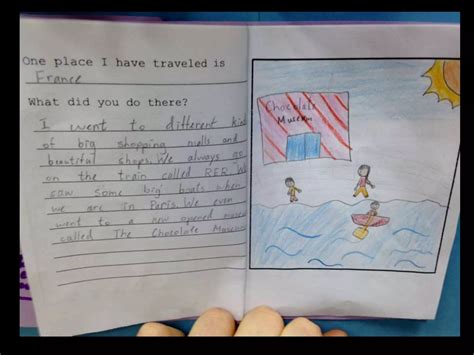 One place I have traveled is
France
What did you do there?
I went to different kinds
of big shopping malls and
beautiful shops. We always go
on the train called RER. We
saw some big boats when
we are in Paris. We even
went to a new opened
called The Chocolate
Chocolate
Museum